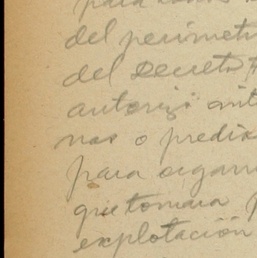 para
del perimetr
del Decreto
autorizó ant
nas o predi
para organi
que tomara p
explotación